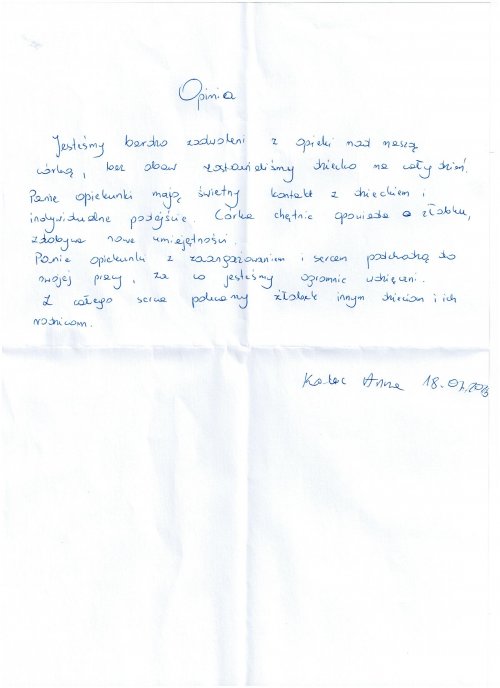 Opinia
Jesteśmy bardzo zadwoleni z opieki nad naszą
córką, bez obaw zostawialiśmy dziecko na cały dzień.
Panie opiekunki mają świetny kontakt z dzieckiem i
indywidualne podejście. Córka chętnie opowiada o żłobku,
zdobywa nowe umiejętności.
Panie opiekunki z zaangażowaniem i sercem podchodzą do
swojej pracy, za co jesteśmy ogromnie wdzięczni.
Z całego serca polecamy żłobek innym dzieciom i ich
rodzicom.
Anna 18.07.2013